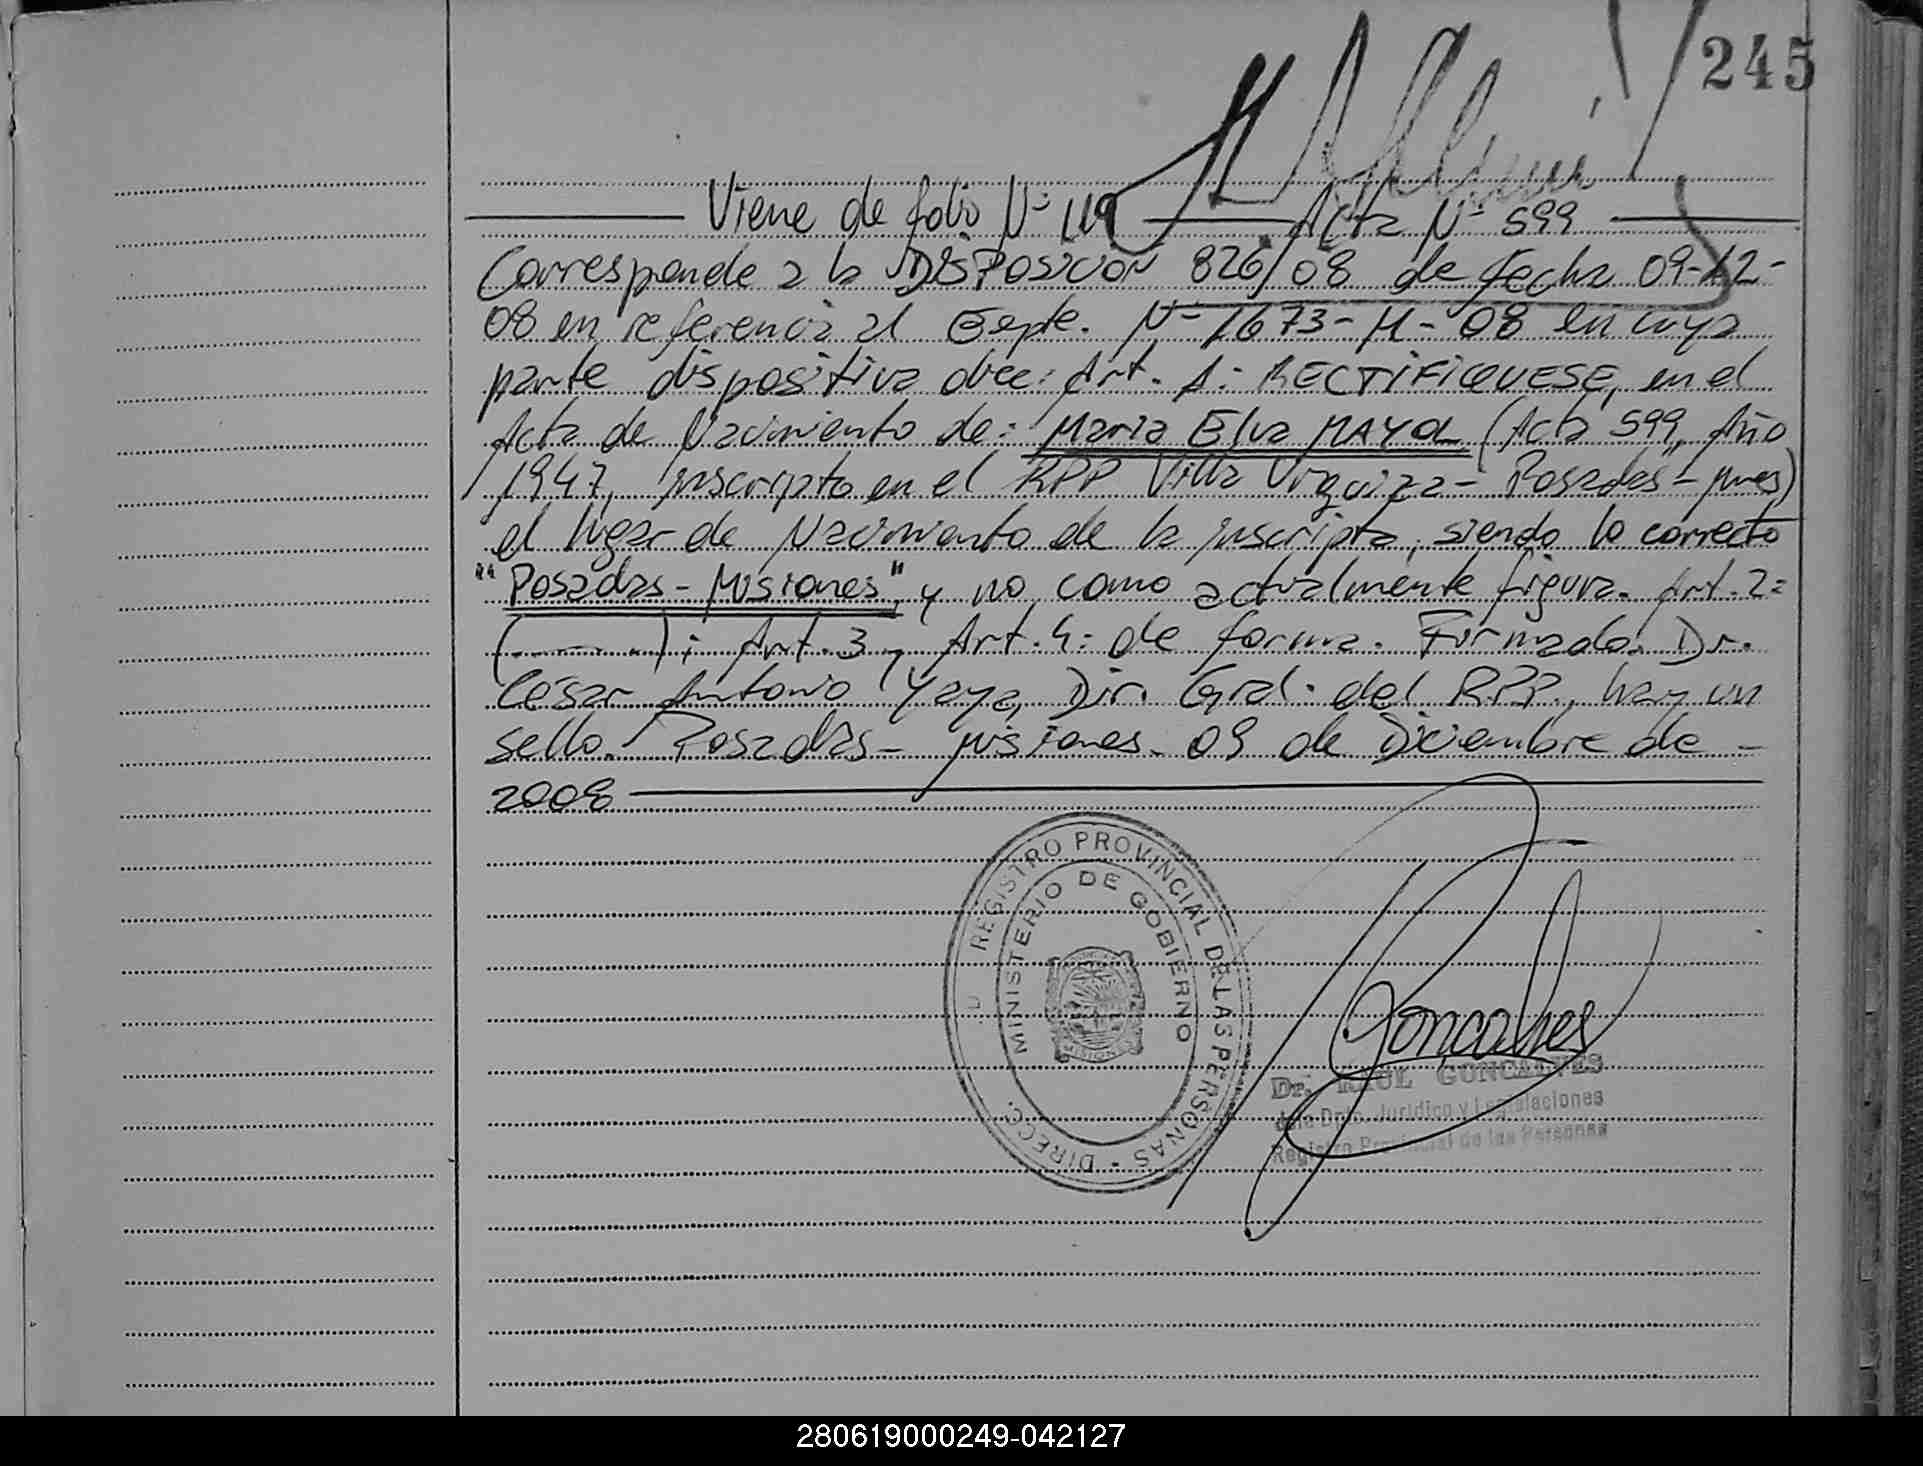 245
Viene de folio Nº 119 Acta Nº 599
Corresponde a la DISPOSICION 826/08 de fecha 09-12-
08 en referencia al Expte. Nº 1673-M-08 en cuya
parte dispositiva dice: Art. 1: RECTIFIQUESE, en el
Acta de Nacimiento de: Maria Elva MAYOL (Acta 599, Año
1947, inscripto en el RPP Villa Urquiza - Posadas - Mnes)
el lugar de Nacimiento de la inscripta, siendo lo correcto
"Posadas - Misiones", y no como actualmente figura. Art. 2:
(.......); Art. 3 y Art. 4: de forma. Firmado: Dr.
César Antonio Yaya, Dir. Gral. del R.P.P., hay un
sello. Posadas - Misiones. 09 de Diciembre de -
2008
REGISTRO PROVINCIAL DE LAS PERSONAS - DIRECC.
MINISTERIO DE GOBIERNO
MISIONES
Goncalves
Dr. RAUL GONCALVES
Jefe Dpto. Jurídico y Legislaciones
Registro Provincial de las Personas
280619000249-042127